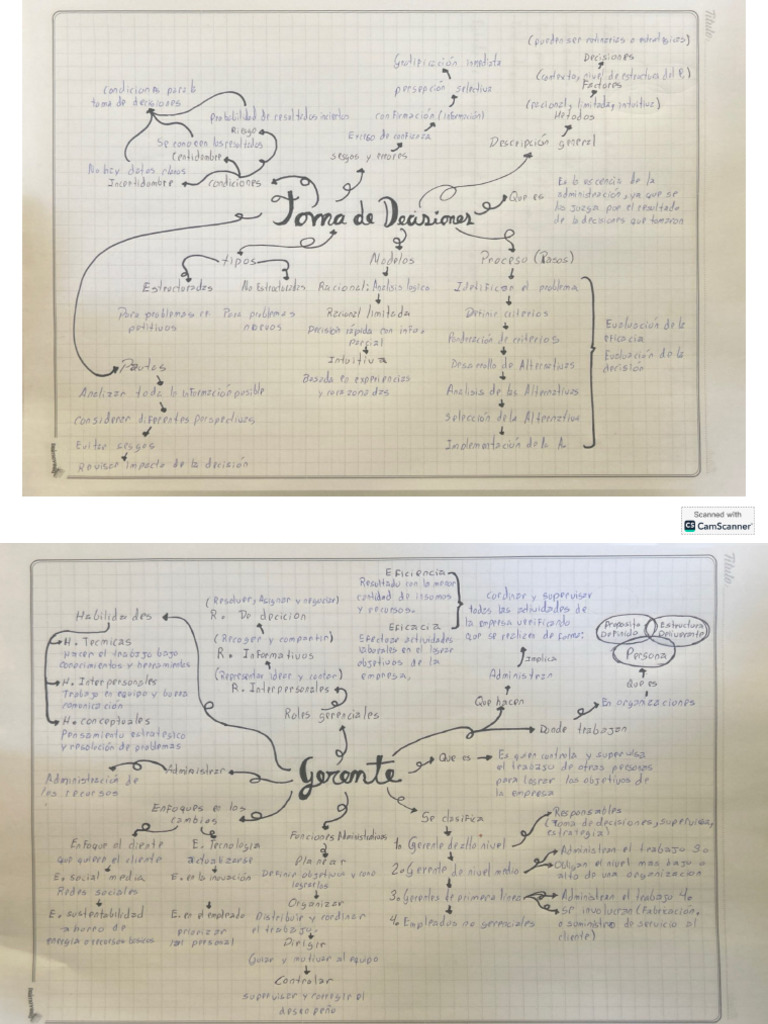 Titulo.
(pueden ser rutinarias o estratégicas)
Decisiones
(contexto, nivel de estructura del P.)
Factores
(racional, limitada, intuitiva)
Metodos
Descripción general
Gratificación inmediata
persepción selectiva
confirmación (información)
Exceso de confianza
sesgos y errores
Condiciones para la
toma de decisiones
Probabilidad de resultados inciertos
Riesgo
Se conocen los resultados
Centidumbre
No hay datos claros
Incentidumbre
condiciones
Toma de Decisiones
Que es
Es la escencia de la
administración, ya que se
los juzga por el resultado
de la decisiones que tomaron
tipos
Estructuradas
No Estructuradas
Para problemas re
petitivos
Para problemas
nuevos
Modelos
Racional: Analisis logico
Racional limitada
Decisión rápida con info
parcial
Intuitiva
Basada en experiencias
y corazonadas
Proceso (Pasos)
Idetificar el problema
Definir criterios
Ponderación de criterios
Desarrollo de Alternativas
Analisis de las Alternativas
Selección de la Alternativa
Implementación de la A.
Evaluación de la
eficacia
Evaluación de la
decisión
Pautas
Analizar toda la información posible
considerar diferentes perspectivas
Evitar sesgos
Revisar impacto de la decisión
Scanned with
CS CamScanner
Titulo.
Habilidades
H. Tecnicas
Hacer el trabajo bajo
conocimientos y herramientas
H. Interpersonales
Trabajo en equipo y buena
comunicación
H. conceptuales
Pensamiento estrategico
y resolución de problemas
(Resolver, Asignar y negociar)
R. De decición
(Recoger y compartir)
R. Informativos
R. Interpersonales
Roles gerenciales
Eficiencia
Resultado con la menor
cantidad de insumos
y recursos.
Eficacia
Efectuar actividades
laborales en el lograr
objetivos de la
empresa.
Cordinar y supervisar
todas las actividades de
la empresa verificando
que se realicen de forma:
Implica
Administrar
Que hacen
Proposito
Definido
Estructura
Deliverante
Persona
Que es
En organizaciones
Donde trabajan
Gerente
Que es
Es quien controla y supervisa
el trabajo de otras personas
para lograr los objetivos de
la empresa
Administrar
Administración de
los recursos
Enfoques en los
cambios
Enfoque al cliente
que quiere el cliente
E. social media
Redes sociales
E. sustentabilidad
ahorro de
energia o recursos basicos
E. Tecnologia
actualizarse
E. en la inovación
E. en el empleado
priorizar
Funciones Administrativas
Planear
Definir objetivos y como
lograrlos
Organizar
Distribuir y cordinar
el trabajo.
Dirigir
Guiar y motivar al equipo
Controlar
supervisar y corregir el
desempeño
Se clasifica
1. Gerente de alto nivel
2. Gerente de nivel medio
3. Gerentes de primera linea
4. Empleados no gerenciales
Responsables
(toma de decisiones, supervisa,
estrategia)
Administran el trabajo 3.
Dirigen el nivel mas bajo o
alto de una organizacion
Administran el trabajo 4.
Se involucran (Fabricación,
o suministro de servicio al
cliente)